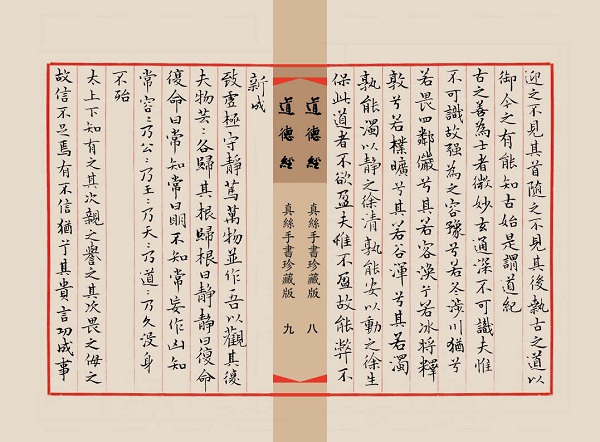 迎之不見其首隨之不見其後執古之道以
御今之有能知古始是謂道紀
古之善為士者微妙玄通深不可識夫惟
不可識故強為之容豫兮若冬涉川猶兮
若畏四鄰儼兮其若容渙兮若冰將釋
敦兮若樸曠兮其若谷渾兮其若濁
孰能濁以靜之徐清孰能安以動之徐生
保此道者不欲盈夫惟不盈故能弊不
道德經 真絲手書珍藏版 八
道德經 真絲手書珍藏版 九
新成
致虛極守靜篤萬物並作吾以觀其復
夫物芸〻各歸其根歸根曰靜靜曰復命
復命曰常知常曰明不知常妄作凶知
常容〻乃公〻乃王〻乃天〻乃道〻乃久沒身
不殆
太上下知有之其次親之譽之其次畏之侮之
故信不足焉有不信猶兮其貴言功成事